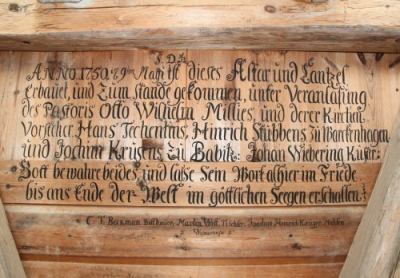 S. D. G.
ANNO. 1750. 29 Maji ist dieses Altar und Cantzel
Erbauet, und zum stande gekommen, unter Veranlaßung
des Pastoris Otto Wilhelm Millies, und derer Kirchen
Vorsteher, Hans Techentins, Hinrich Stübbens zu
und Jochim Krüsens zu Babik. Johan Wiebering Küster.
Gott bewahre beides, und laße Sein Wort alhier im Friede
bis ans Ende der Welt im göttlichen Seegen erschallen.
Beckman Martin Tischler,